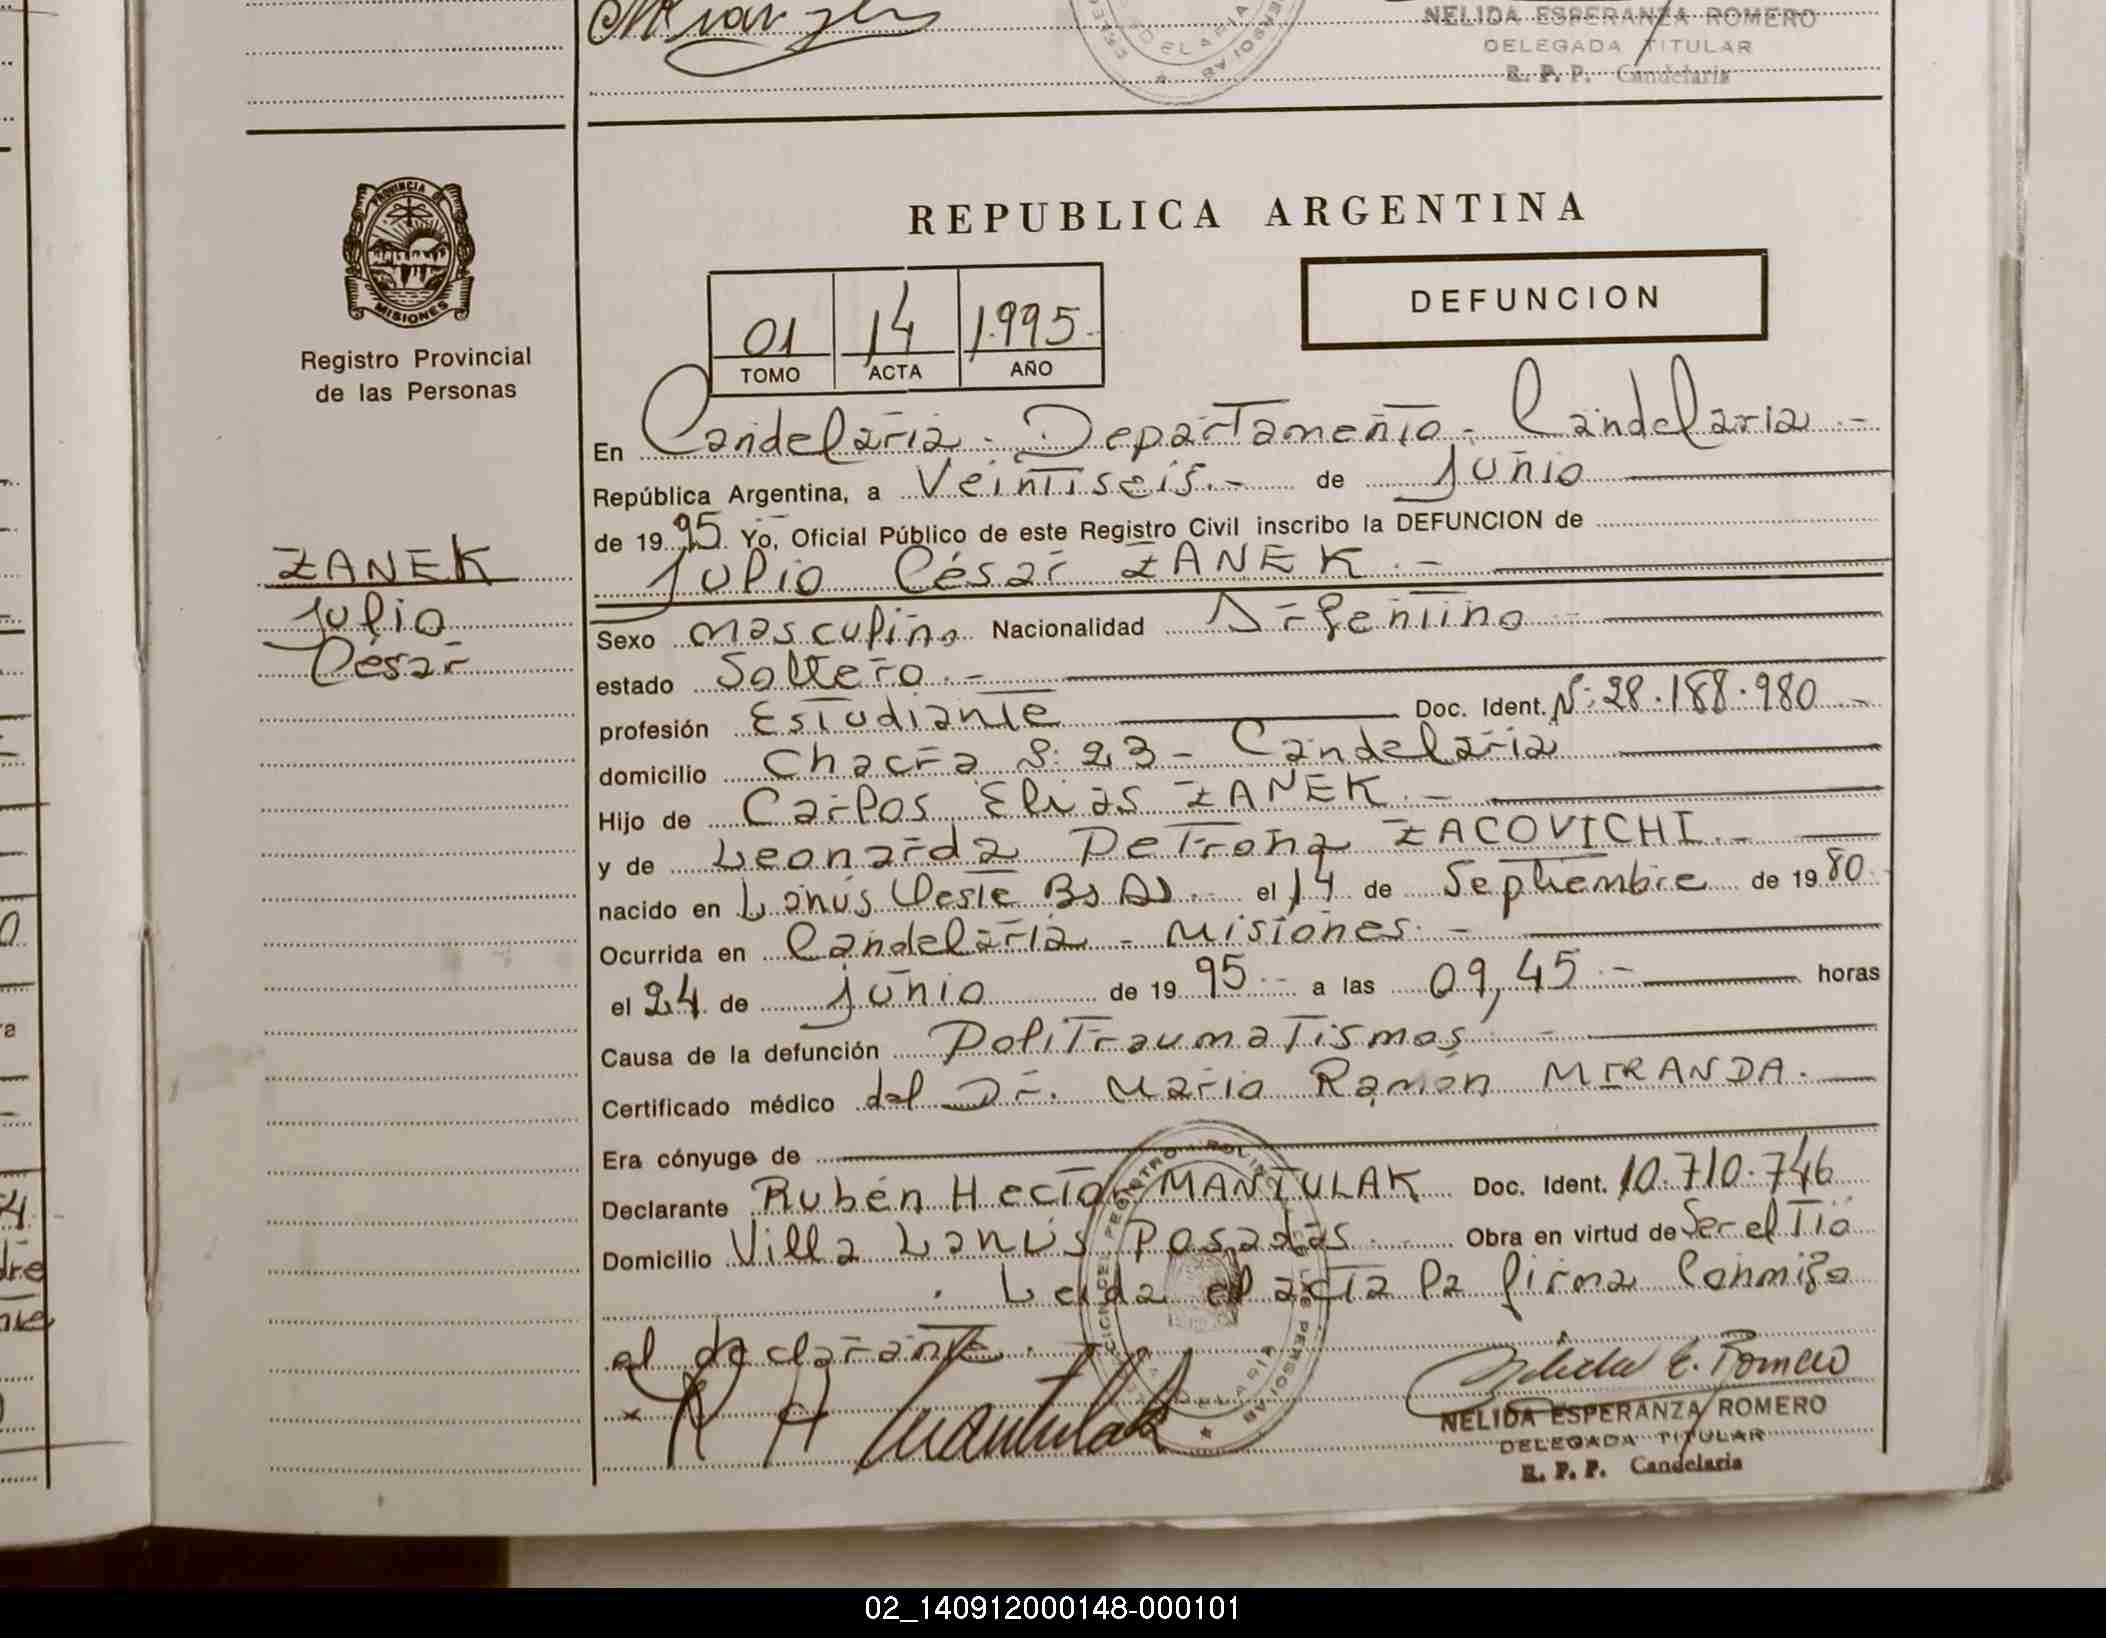 NELIDA ESPERANZA ROMERO
DELEGADA TITULAR
R. P. P. Candelaria
PROVINCIA
MISIONES
Registro Provincial
de las Personas
REPUBLICA ARGENTINA
01 14 1.995.
TOMO ACTA AÑO
DEFUNCION
En Candelaria - Departamento - Candelaria -
República Argentina, a Veintiseis.- de Junio
de 19 95. Yo, Oficial Público de este Registro Civil inscribo la DEFUNCION de
ZANEK
Julio
César
Julio César ZANEK.-
Sexo masculino Nacionalidad Argentino
estado Soltero.-
profesión Estudiante Doc. Ident. Nº: 28.188.980
domicilio Chacra 23 - Candelaria
Hijo de Carlos Elias ZANEK.-
y de Leonarda Petrona ZACOVICHI.-
nacido en Lanús Oeste Bs As.- el 14 de Septiembre de 19 80
Ocurrida en Candelaria - Misiones.-
el 24 de junio de 19 95.- a las 09,45.- horas
Causa de la defunción Politraumatismos
Certificado médico del Dr. Mario Ramón MIRANDA.
Era cónyuge de
Declarante Rubén Hector MANTULAK Doc. Ident. 10.710.746
Domicilio Villa Lanús Posadas Obra en virtud de Ser el Tio
. Leida el acta la firma conmigo
el declarante.
x R H Mantulak
Nélida E. Romero
NELIDA ESPERANZA ROMERO
DELEGADA TITULAR
R. P. P. Candelaria
02_140912000148-000101